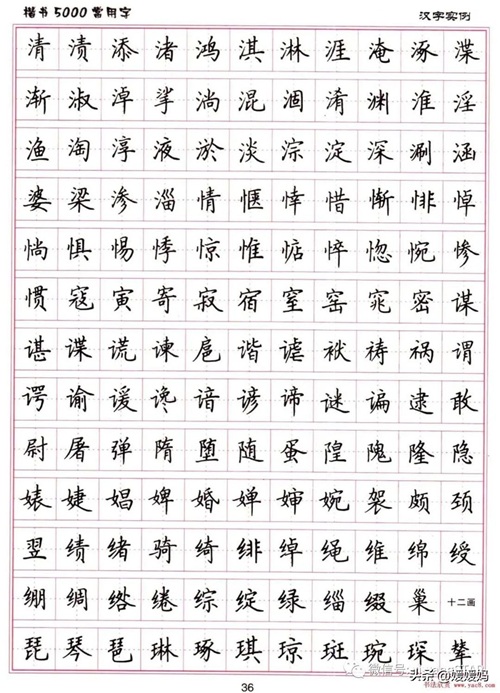 楷书5000常用字 汉字实例
清 渍 添 渚 鸿 淇 淋 涯 淹 涿 渫
渐 淑 淖 挲 淌 混 涸 淆 渊 淮 淫
渔 淘 淳 液 淤 淡 淙 淀 深 涮 涵
婆 梁 渗 淄 情 惬 悻 惜 惭 悱 悼
惝 惧 惕 悸 惊 惟 惦 悴 惚 惋 惨
惯 寇 寅 寄 寂 宿 窒 窑 窕 密 谋
谌 谍 谎 谏 扈 谐 谑 袱 祷 祸 谓
谔 谕 谖 谗 谙 谚 谛 谜 谝 逮 敢
尉 屠 弹 隋 堕 随 蛋 隍 隗 隆 隐
婊 婕 娼 婢 婚 婵 婶 婉 袈 颇 颈
翌 绩 绪 骑 绮 绯 绰 绳 维 绵 绶
绷 绸 绺 绻 综 绽 绿 缁 缀 巢 十二画
琵 琴 琶 琳 琢 琪 琼 斑 琬 琛 辇
36
头条@媛媛妈